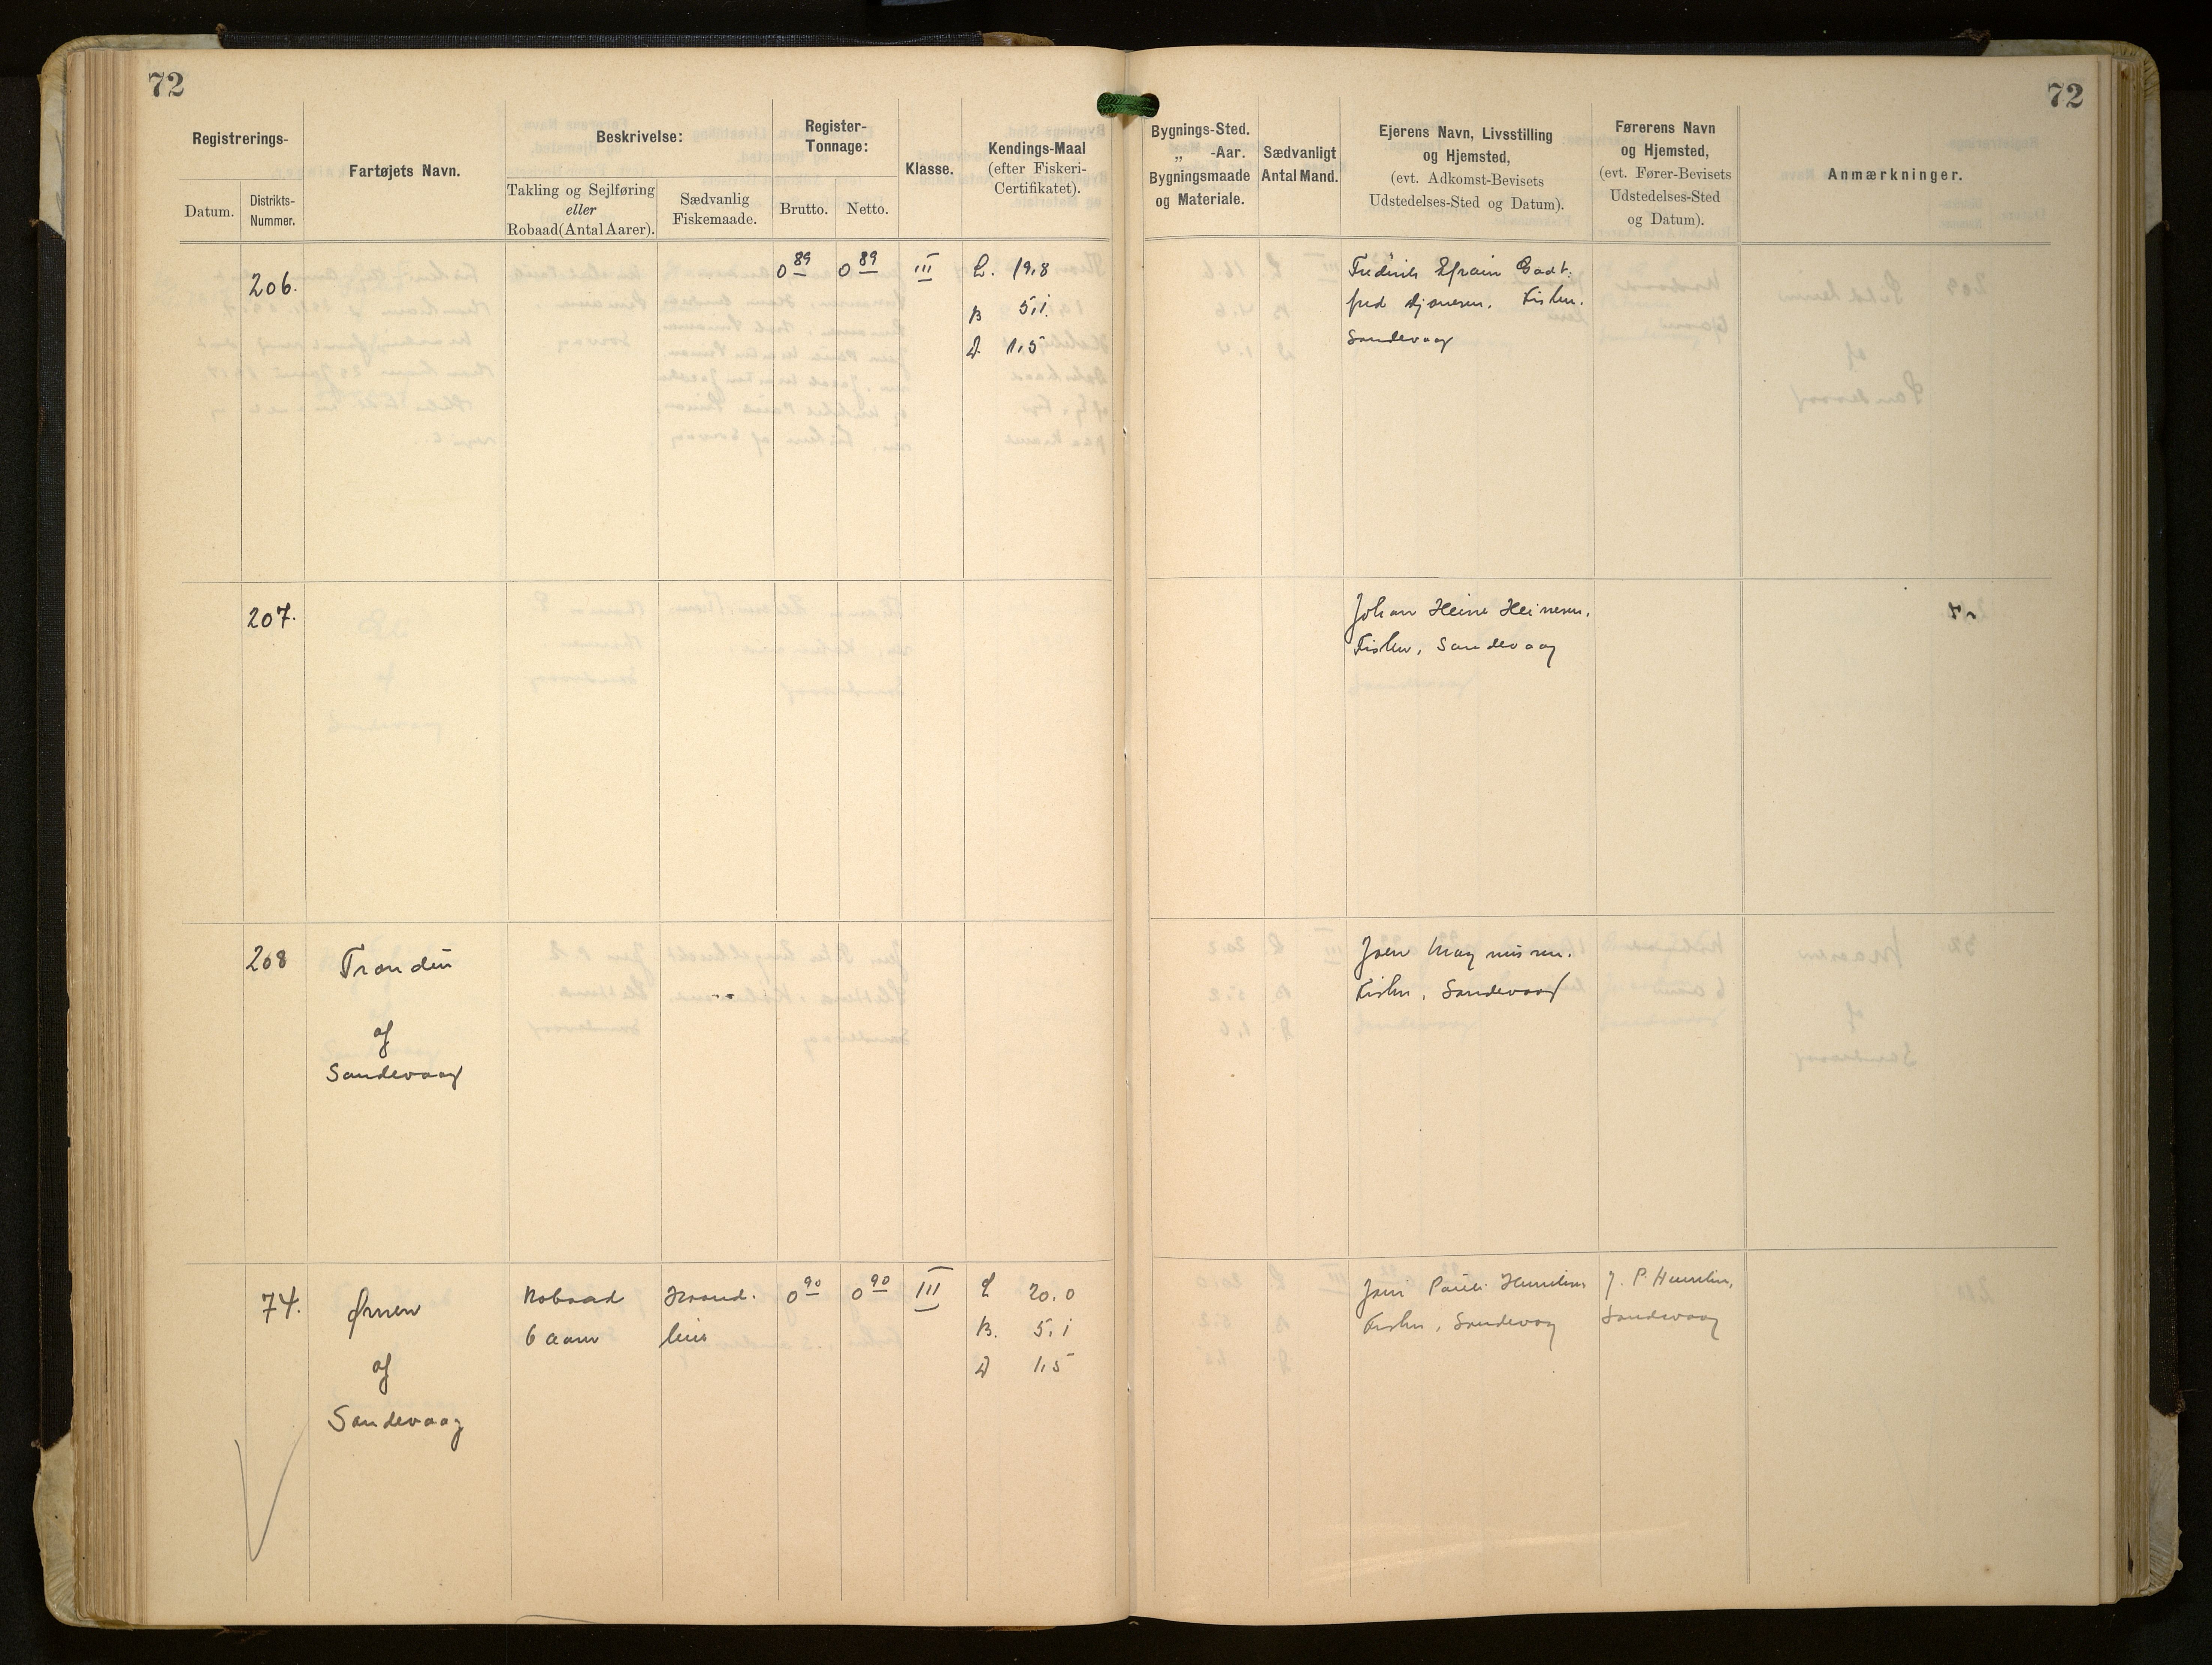 72
72
Registrerings-
Datum.
Distrikts-
Nummer.
Fartøjets Navn.
Beskrivelse:
Takling og Sejlføring
eller
Robaad (Antal Aarer).
Sædvanlig
Fiskemaade.
Register-
Tonnage:
Brutto.
Netto.
Klasse.
Kendings-Maal
(efter Fiskeri-
Certifikatet).
Bygnings-Sted.
„ -Aar.
Bygningsmaade
og Materiale.
Sædvanligt
Antal Mand.
Ejerens Navn, Livsstilling
og Hjemsted,
(evt. Adkomst-Bevisets
Udstedelses-Sted og Datum).
Førerens Navn
og Hjemsted,
(evt. Fører-Bevisets
Udstedelses-Sted
og Datum).
Anmærkninger.
206.
0 89
0 89
III
L. 19,8
B 5,1.
D. 1,5
Frederik Efraim Godt:
fred Fisker.
Sandevaag
207.
Johan Heine Heinesen.
Fisker, Sandevaag
208
Trondur
af
Sandevaag
Joen Magnussen.
Fisker, Sandevaag
74.
Ørnen
af
Sandevaag
Robaad
6 aarer
Haand.
line
0 90
0 90
III
L 20.0
B. 5,1
D 1,5
Fisker, Sandevaag
J. P.
Sandevaag